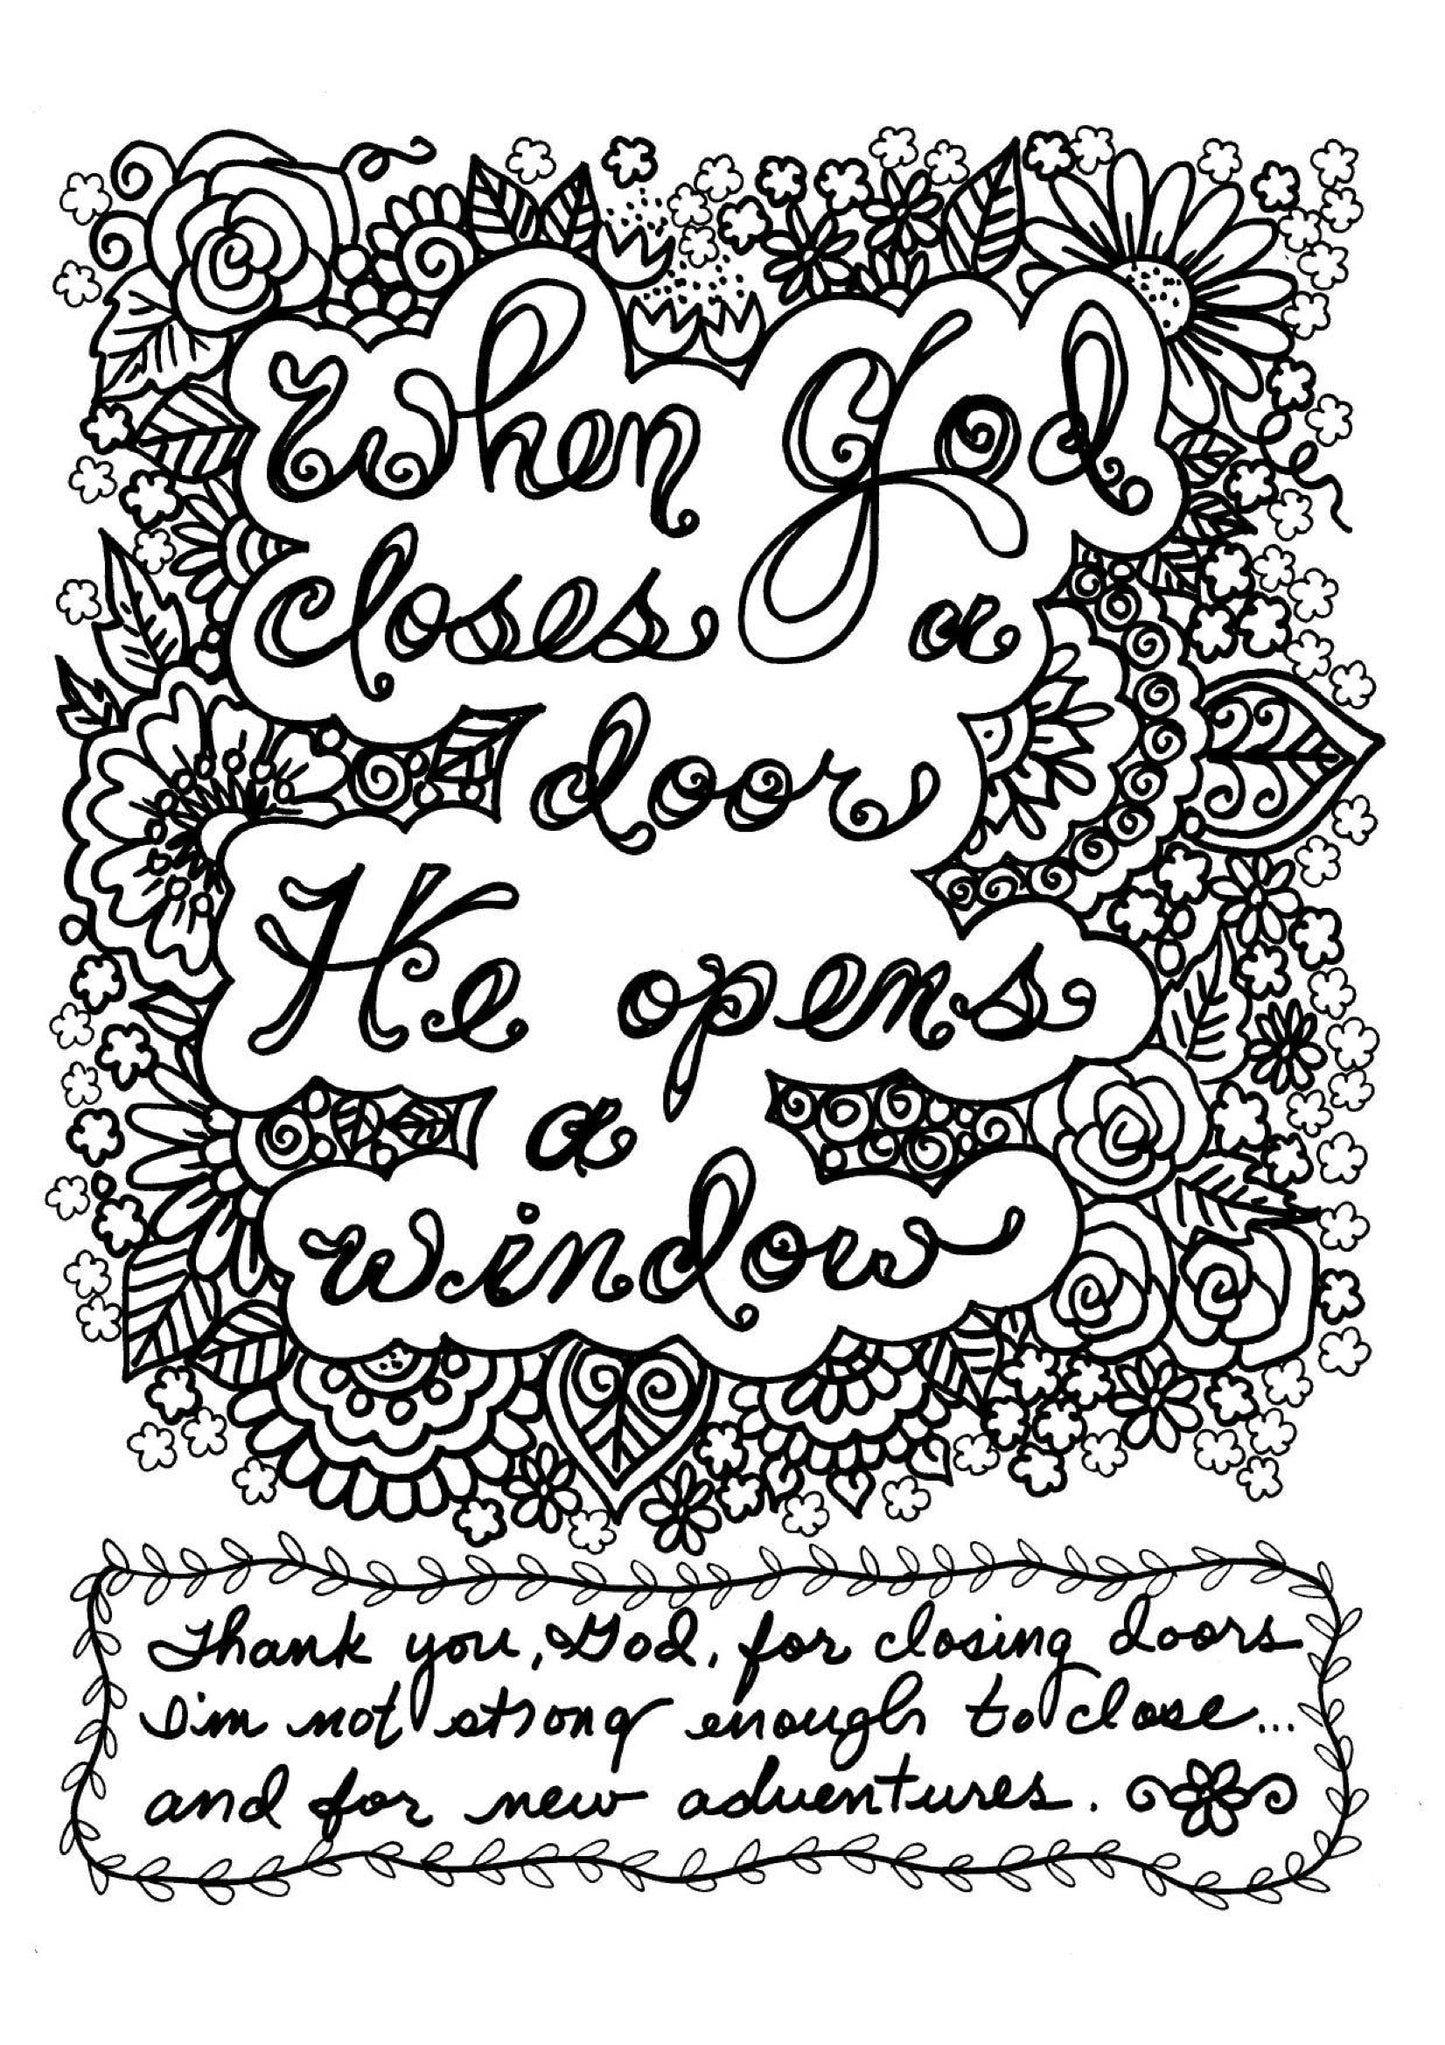 When God
closes a
door
He opens
a
window
Thank you, God, for closing doors
I'm not strong enough to close...
and for new adventures.